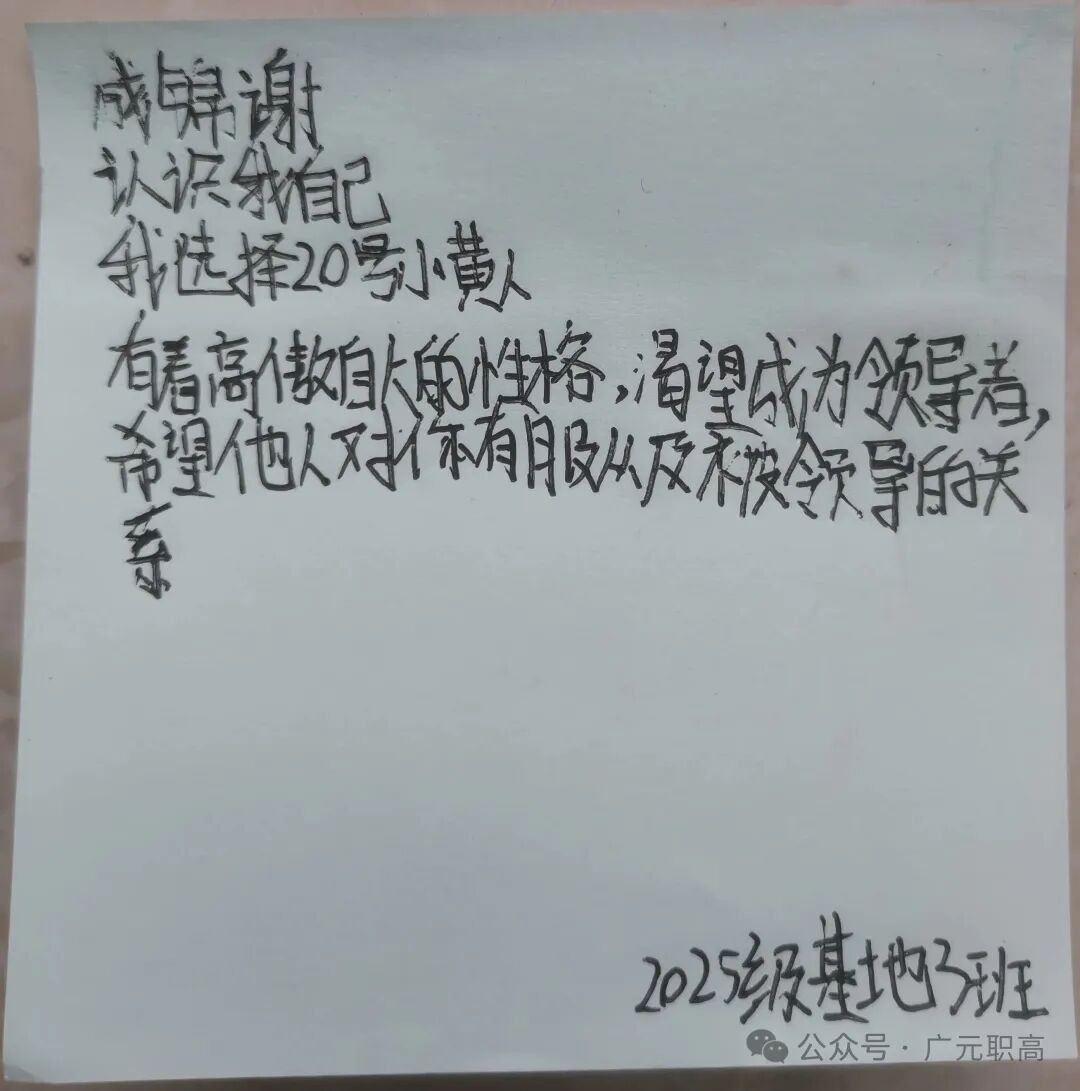 成锦谢
认识我自己
我选择20号小黄人
有着高傲自大的性格,渴望成为领导者,
希望他人对你有服从及被领导的关
系
2025级基地3班
公众号·广元职高